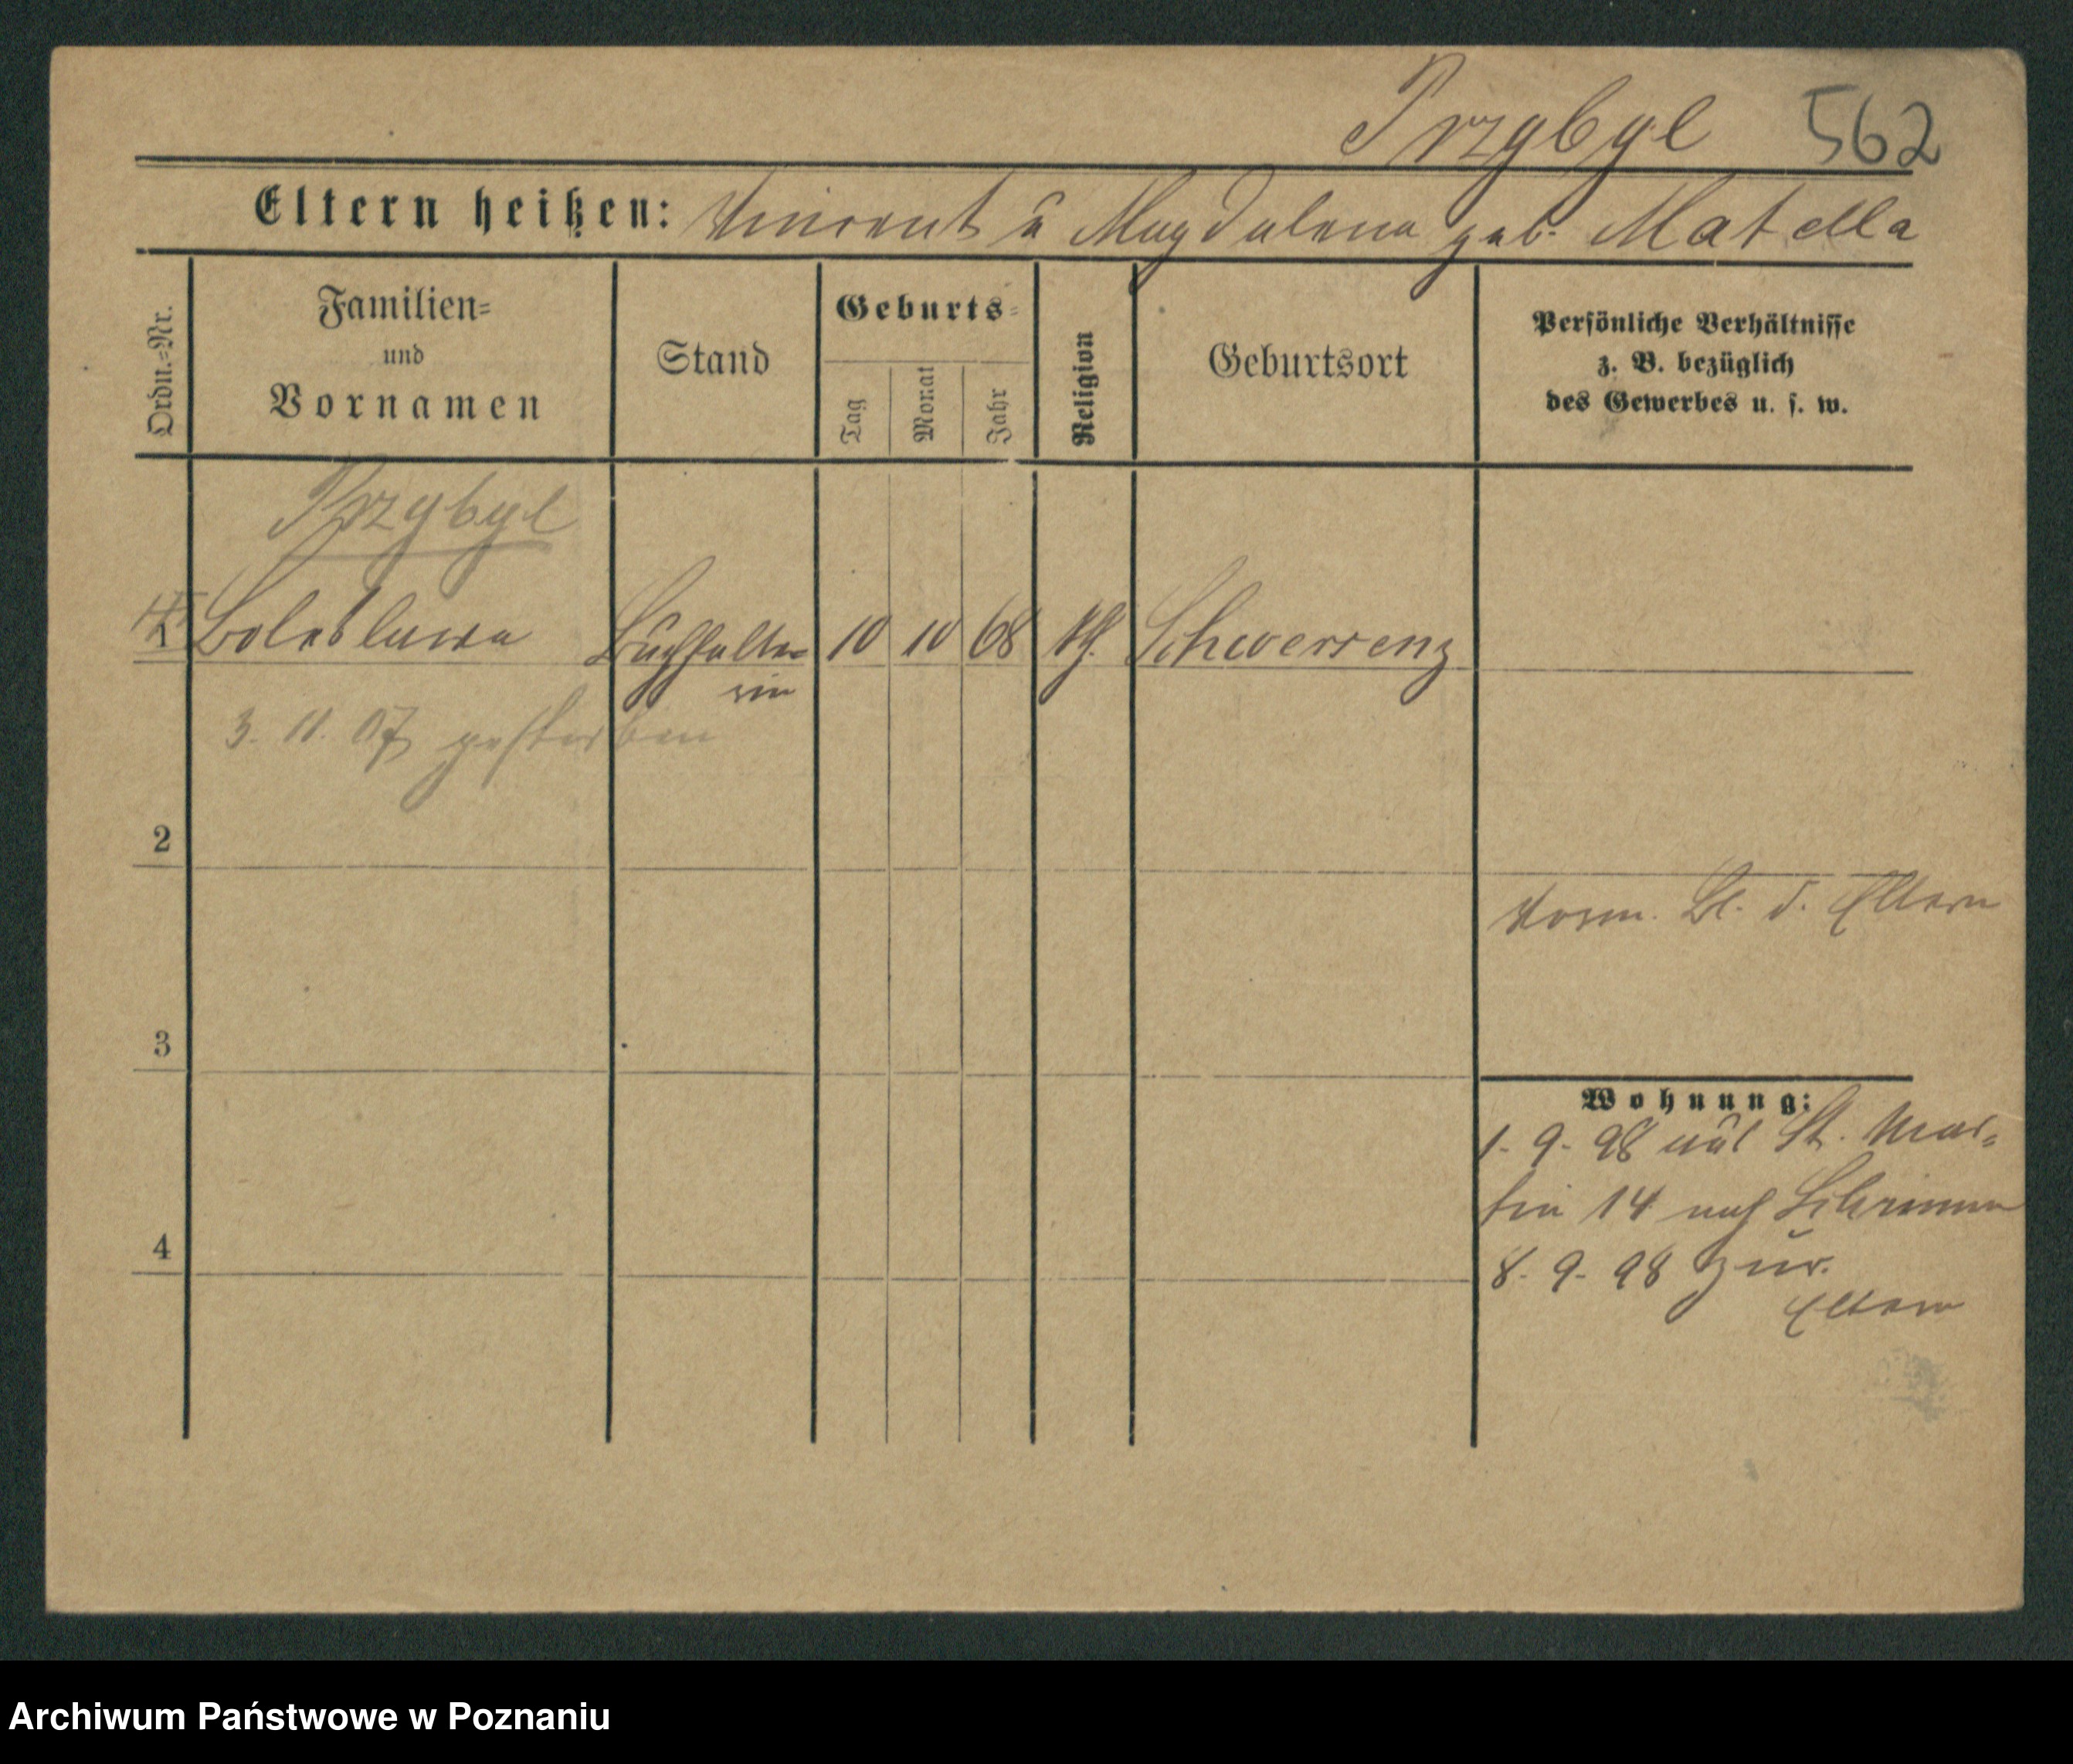 Przybyl 562
Eltern heißen: Vincent u Magdalena geb. Matella
Ordn.-Nr.
Familien-
und
Vornamen
Stand
Geburts-
Tag
Monat
Jahr
Religion
Geburtsort
Persönliche Verhältnisse
z. B. bezüglich
des Gewerbes u. s. w.
Przybyl
1 Boleslawa Buchhalte- 10 10 68 kth. Schwersenz
rin
3. 11. 07 gestorben
2
Vorm. Bl. d. Eltern
3
Wohnung:
1. 9. 98 aus St. Mar-
tin 14 nach Schrimm
4
8. 9. 98 zur.
Eltern
Archiwum Państwowe w Poznaniu